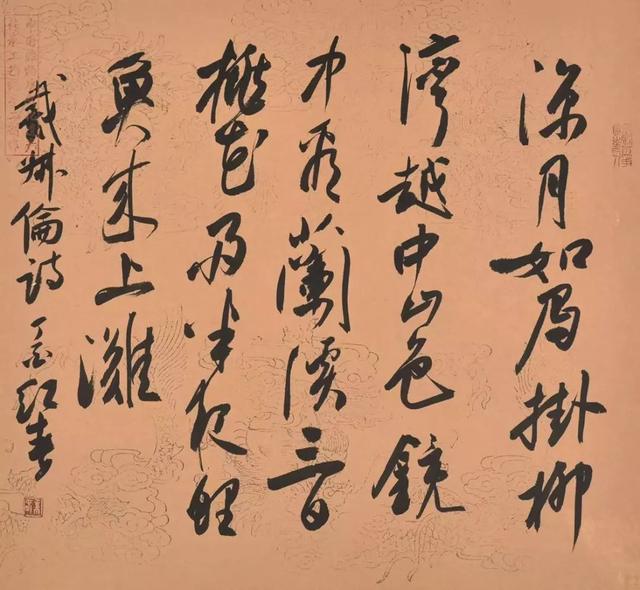 涼月如眉掛柳
灣越中山色鏡
中看蘭溪三日
桃花雨半夜鯉
魚來上灘
戴叔倫詩